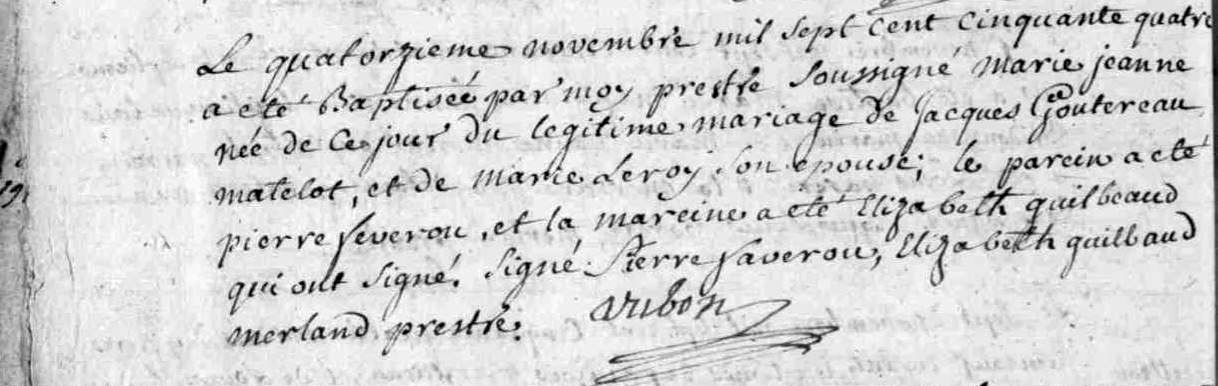 Le quatorzieme novembre mil sept cent cinquante quatre
a eté Baptisée par moy prestre soussigné marie jeanne
née de ce jour du legitime mariage de jacques Goutereau
matelot, et de marie Leroy son epouse; le parein a eté
pierre feverou, et la mareine a eté Elizabeth quilbeaud
qui ont signé. signé. Pierre faverou, Elizabeth quilbaud
merland prestre.